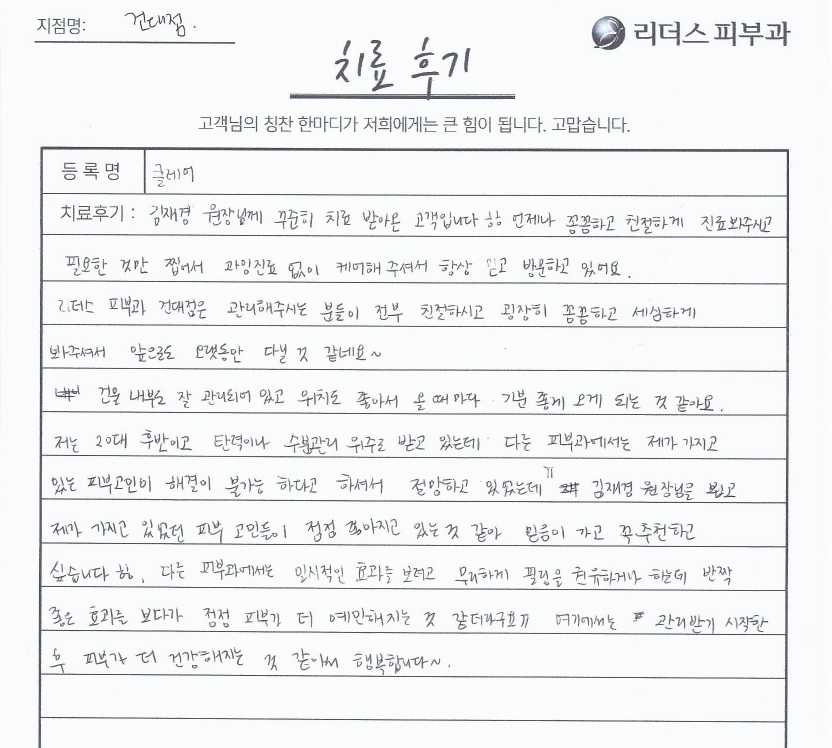 지점명: 건대점.
리더스 피부과
치료 후기
고객님의 칭찬 한마디가 저희에게는 큰 힘이 됩니다. 고맙습니다.
등록명 클레어
치료후기 : 김재경 원장님께 꾸준히 치료 받아온 고객입니다 ㅎㅎ 언제나 꼼꼼하고 친절하게 진료봐주시고
필요한 것만 찝어서 과잉진료 없이 케어해 주셔서 항상 믿고 방문하고 있어요.
리더스 피부과 건대점은 관리해주시는 분들이 전부 친절하시고 굉장히 꼼꼼하고 세심하게
봐주셔서 앞으로도 오랫동안 다닐 것 같네요~
건물 내부도 잘 관리되어 있고 위치도 좋아서 올 때마다 기분 좋게 오게 되는 것 같아요.
저는 20대 후반이고 탄력이나 수분관리 위주로 받고 있는데 다른 피부과에서는 제가 가지고
있는 피부고민이 해결이 불가능 하다고 하셔서 절망하고 있었는데ㅠ 김재경 원장님을 뵙고
제가 가지고 있었던 피부 고민들이 점점 좋아지고 있는 것 같아 믿음이 가고 꼭 추천하고
싶습니다 ㅎㅎ. 다른 피부과에서는 일시적인 효과를 보려고 무리하게 필링을 권유하거나 하는데 반짝
좋은 효과를 보다가 점점 피부가 더 예민해지는 것 같더라구요ㅠ 여기에서는 관리받기 시작한
후 피부가 더 건강해지는 것 같아서 행복합니다~.